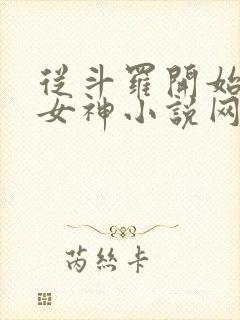 從斗羅開始
女神小説网
芮絲卡